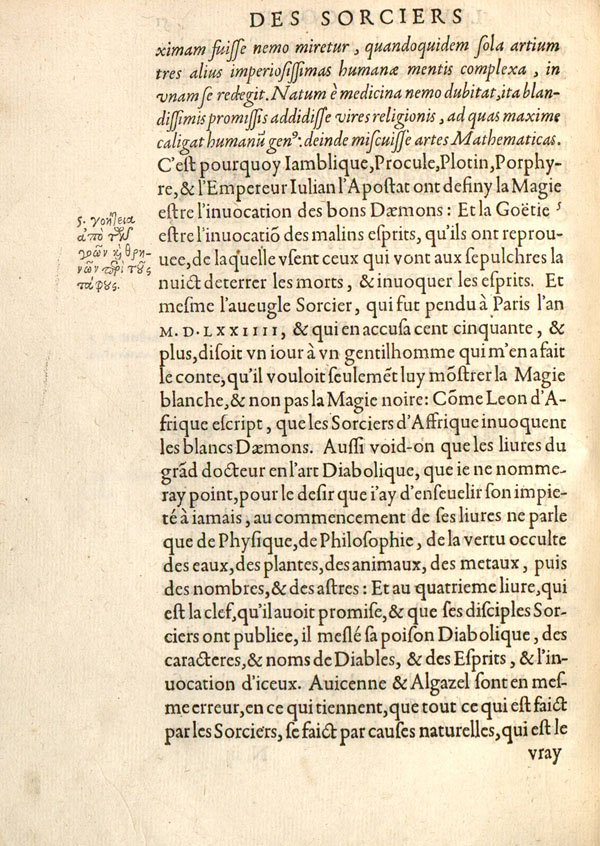 DES SORCIERS
ximam fuiſſe nemo miretur, quandoquidem ſola artium
tres alius imperioſiſſimas humanæ mentis complexa, in
vnam ſe redegit. Natum è medicina nemo dubitat, ita blan-
diſſimis promiſſis addidiſſe vires religionis, ad quas maxime
caligat humanū genꝰ: deinde miſcuiſſe artes Mathematicas.
C'eſt pourquoy Iamblique, Procule, Plotin, Porphy-
re, & l'Empereur Iulian l'Apoſtat ont definy la Magie
eſtre l'inuocation des bons Dæmons: Et la Goëtie 5
eſtre l'inuocatiō des malins eſprits, qu'ils ont reprou-
uee, de laquelle vſent ceux qui vont aux ſepulchres la
nuict deterrer les morts, & inuoquer les eſprits. Et
meſme l'aueugle Sorcier, qui fut pendu à Paris l'an
M. D. LXXIIII, & qui en accuſa cent cinquante, &
plus, diſoit vn iour à vn gentilhomme qui m'en a fait
le conte, qu'il vouloit ſeulemēt luy mōſtrer la Magie
blanche, & non pas la Magie noire: Cōme Leon d'A-
frique eſcript, que les Sorciers d'Affrique inuoquent
les blancs Dæmons. Auſſi void-on que les liures du
grād docteur en l'art Diabolique, que ie ne nomme-
ray point, pour le deſir que i'ay d'enſeuelir ſon impie-
té à iamais, au commencement de ſes liures ne parle
que de Phyſique, de Philoſophie, de la vertu occulte
des eaux, des plantes, des animaux, des metaux, puis
des nombres, & des aſtres: Et au quatrieme liure, qui
eſt la clef, qu'il auoit promiſe, & que ſes diſciples Sor-
ciers ont publiee, il meſlé ſa poiſon Diabolique, des
caracteres, & noms de Diables, & des Eſprits, & l'in-
uocation d'iceux. Auicenne & Algazel ſont en meſ-
me erreur, en ce qui tiennent, que tout ce qui eſt faict
par les Sorciers, ſe faict par cauſes naturelles, qui eſt le
vray
5. γοηίεια
ἀπὸ τῶν
γοῶν κὴ θρη-
νῶν περὶ τοὺς
τάφους.